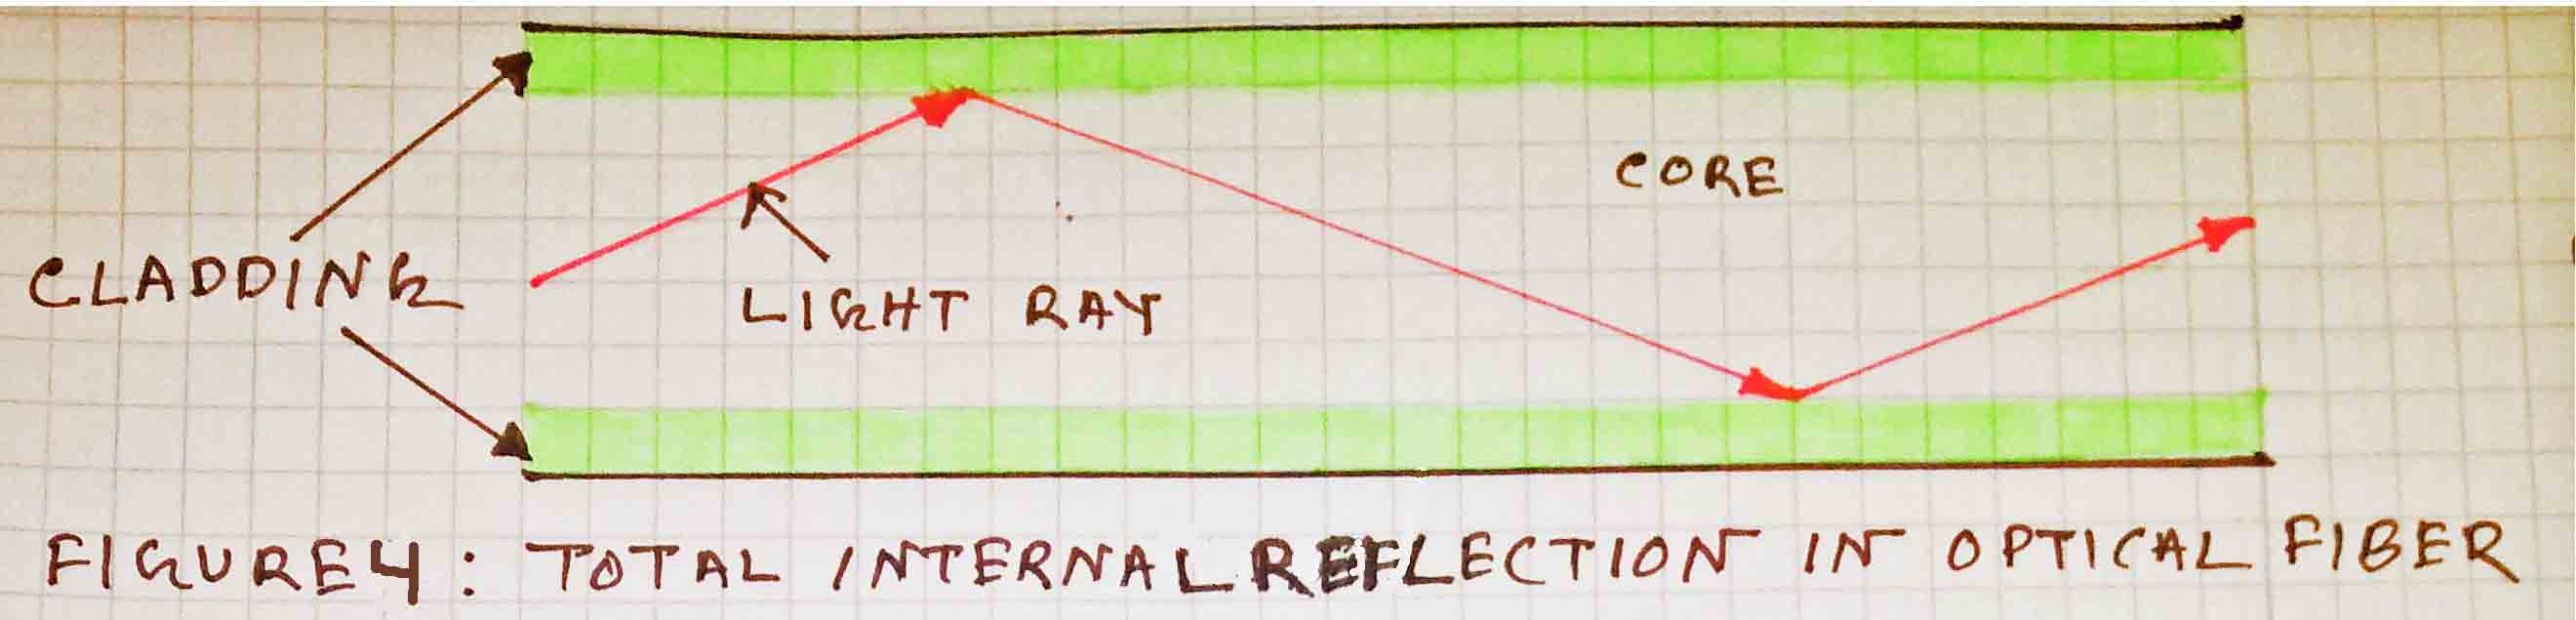 CORE
CLADDING
LIGHT RAY
FIGURE 4: TOTAL INTERNAL REFLECTION IN OPTICAL FIBER